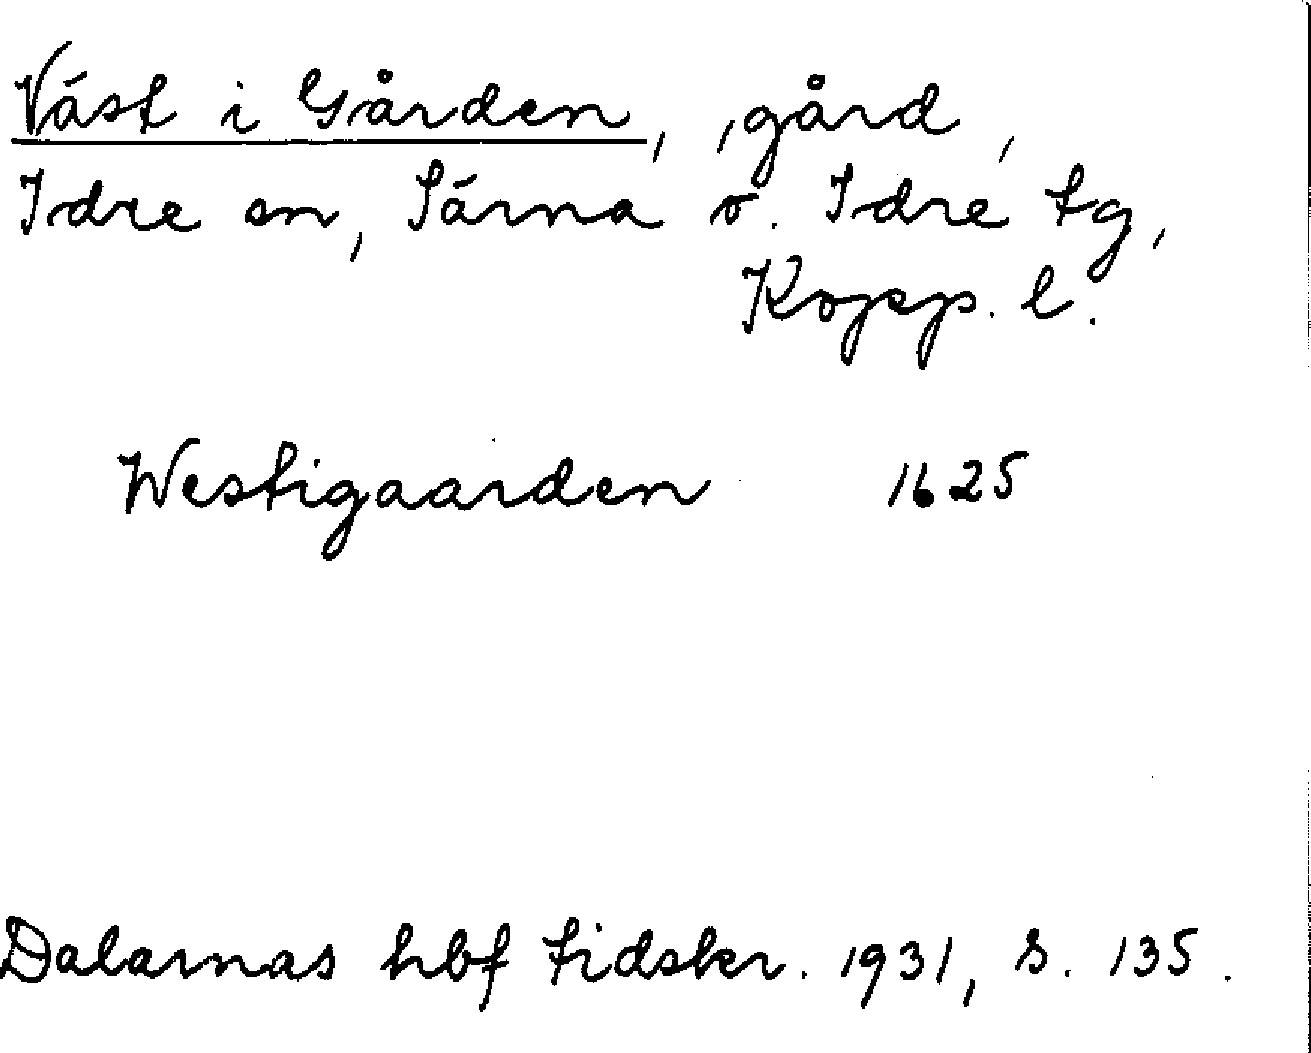 Väst i Gården, , gård,
Idre sn, Särna o. Idre tg,
Kopp. l.
Westigaarden 1625
Dalarnas hbf tidskr. 1931, s. 135.